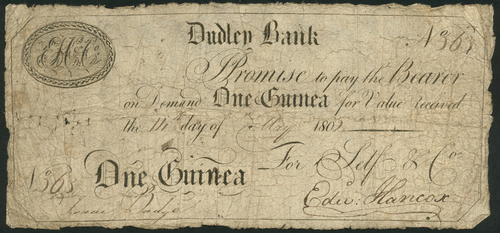 Dudley Bank
No 363
I Promise to pay the Bearer
on Demand One Guinea for Value received
the 14th day of 180
For Self & Co.
No 363
One Guinea
Edw: Hancox